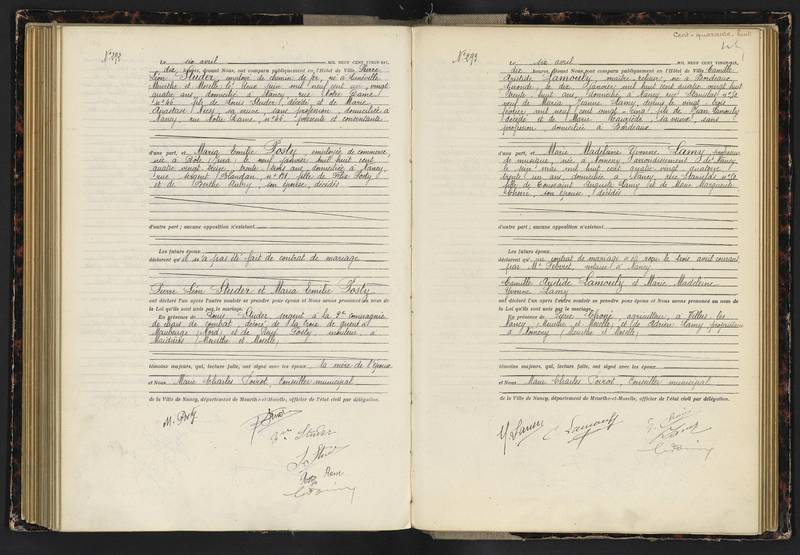 N° 292
Le six avril MIL NEUF CENT VINGT-SIX,
dix heures, devant Nous, ont comparu publiquement en l'Hôtel de Ville Pierre
Léon Studer, employé de chemin de fer, né à Lunéville
Meurthe et Moselle le deux juin mil neuf cent un, vingt
quatre ans, domicilié à Nancy rue Notre Dame
n° 66 fils de Louis Studer, décédé, et de Marie
sa veuve, sans profession, domiciliée à
Nancy rue Notre Dame, n° 66 présente et consentante
d'une part, et Maria Emilie Posty employée de commerce,
née à Dole Jura le neuf janvier mil huit cent
quatre vingt treize, trente trois ans, domiciliée à Nancy,
rue Sergent Blandan, fille de Félix Posty
et de Berthe son épouse, décédés
d'autre part ; aucune opposition n'existant.
Les futurs époux
déclarent qu'il n'a pas été fait de contrat de mariage
Pierre Léon Studer et Maria Emilie Posty
ont déclaré l'un après l'autre vouloir se prendre pour époux et Nous avons prononcé au nom de
la Loi qu'ils sont unis par le mariage.
En présence de Louis Studer, sergent à la 2e compagnie
de chars de combat, décoré de la croix de guerre à
Maubeuge (Nord), et de Posty, mouleur, à
Maidières (Meurthe et Moselle),
témoins majeurs, qui, lecture faite, ont signé avec les époux, la mère de l'époux
et Nous Marie Charles Poirot, Conseiller municipal
de la Ville de Nancy, département de Meurthe-et-Moselle, officier de l'état civil par délégation.
M. Posty
Studer
Studer
Cent-quarante-huit
N° 293
Le six avril MIL NEUF CENT VINGT-SIX,
dix heures, devant Nous, ont comparu publiquement en l'Hôtel de Ville Camille
Aristide Lamouly, maître tailleur, né à Bordeaux
Gironde, le dix janvier mil huit cent quatre vingt huit
trente huit ans, domicilié à Nancy rue Stanislas n° 70
veuf de Maria Jeanne Lamy, depuis le vingt trois
février mil neuf cent vingt cinq, fils de Jean Lamouly
décédé et de Marie sa veuve, sans
profession domiciliée à Bordeaux
d'une part, et Marie Madeleine Yvonne Lamy professeur
de musique, née à Nomeny (arrondissement de Nancy)
le mai mil huit cent quatre vingt quatorze
trente un ans, domiciliée à Nancy rue Stanislas n° 70
fille de Toussaint Auguste Lamy et de Marie Marguerite
son épouse, décédés
d'autre part ; aucune opposition n'existant.
Les futurs époux
déclarent qu'un contrat de mariage a été reçu le trois avril courant
par Me notaire à Nancy
Camille Aristide Lamouly et Marie Madeleine
Yvonne Lamy
ont déclaré l'un après l'autre vouloir se prendre pour époux et Nous avons prononcé au nom de
la Loi qu'ils sont unis par le mariage.
En présence de agriculteur, à Villers les
Nancy (Meurthe et Moselle) et de Adrien Lamy propriétaire
à Nomeny (Meurthe et Moselle),
témoins majeurs, qui, lecture faite, ont signé avec les époux
et Nous Marie Charles Poirot, Conseiller municipal
de la Ville de Nancy, département de Meurthe-et-Moselle, officier de l'état civil par délégation.
Y Lamy
C. Lamouly